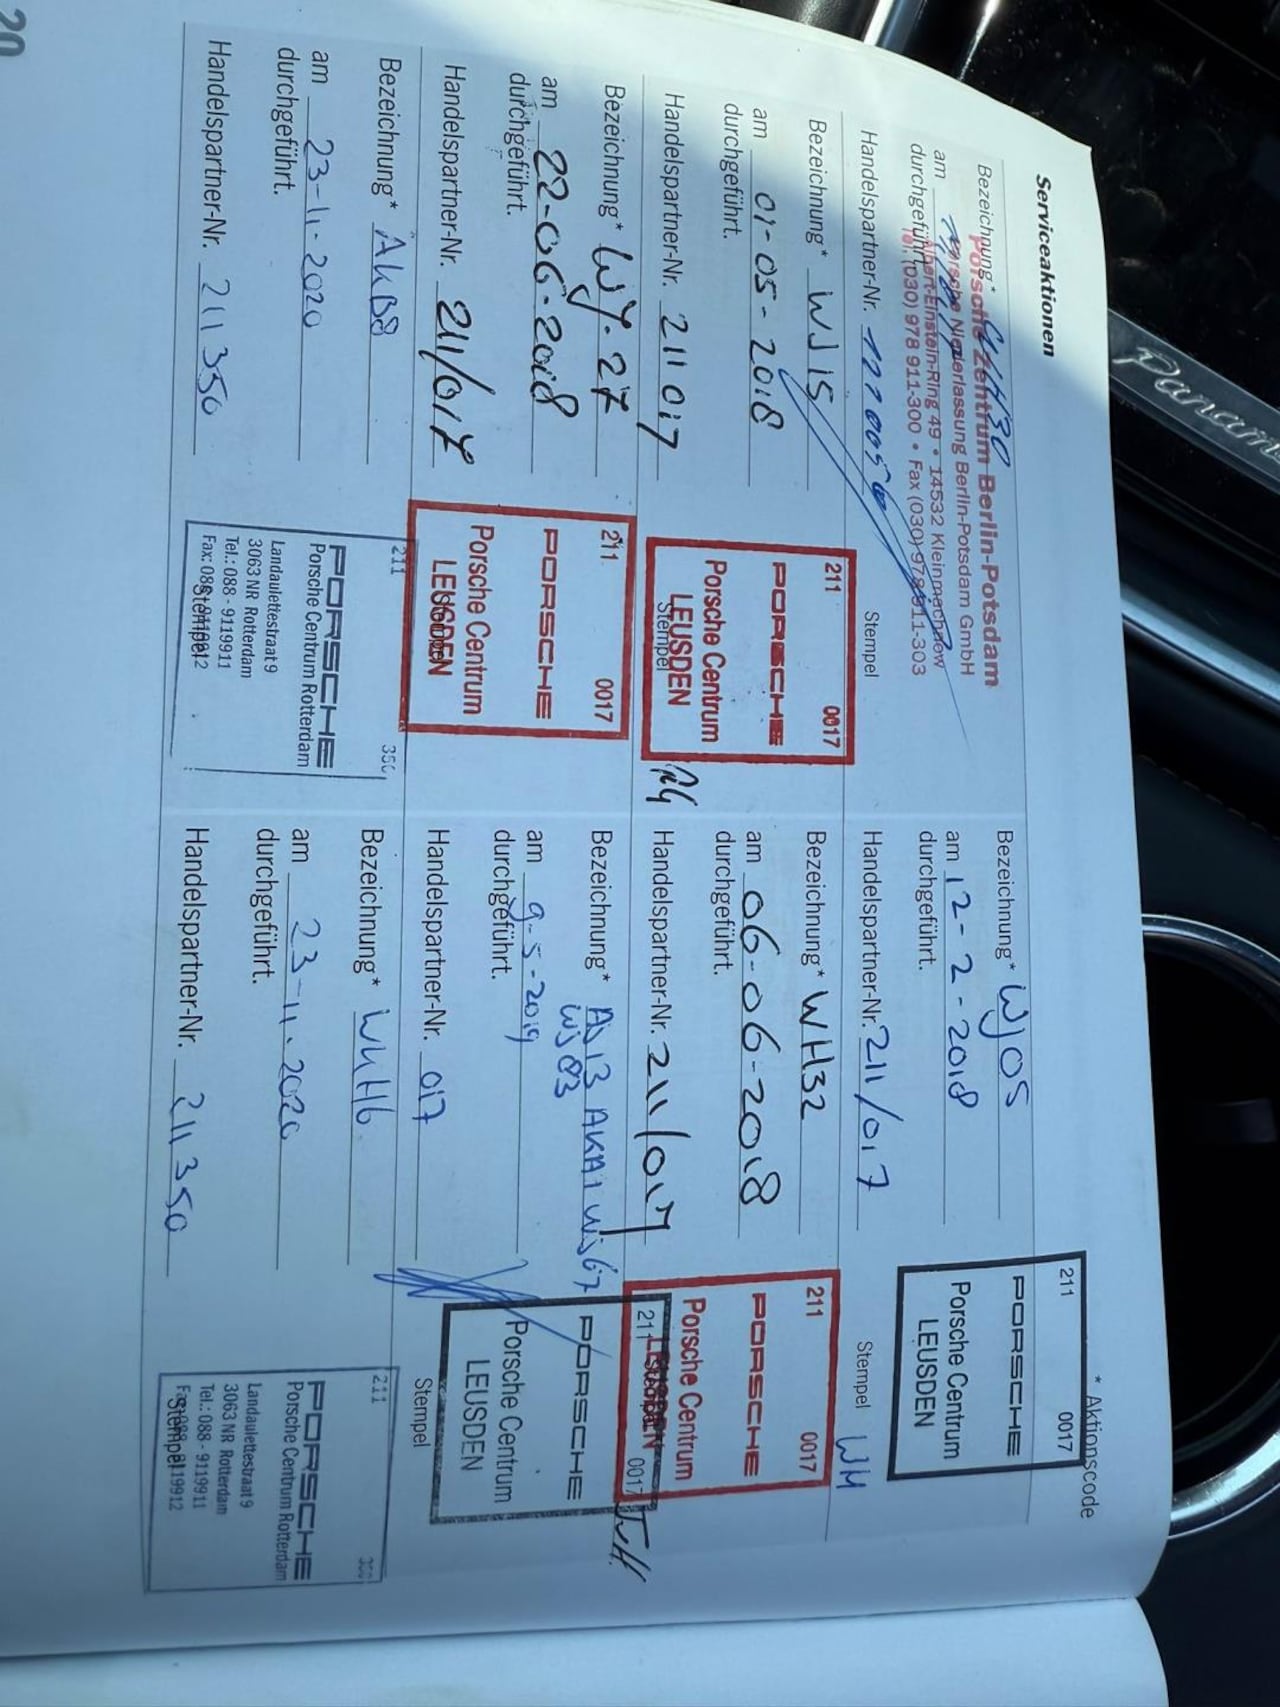 Serviceaktionen
* Aktionscode
Bezeichnung*
Porsche Zentrum Berlin-Potsdam
Porsche Niederlassung Berlin-Potsdam GmbH
Albert-Einstein-Ring 49 • 14532 Kleinmachnow
Tel. (030) 978 911-300 • Fax (030) 978 911-303
am
durchgeführt.
Handelspartner-Nr.
Stempel
Bezeichnung* WJ05
am 12-2-2018
durchgeführt.
Handelspartner-Nr. 211/017
211 0017
PORSCHE
Porsche Centrum
LEUSDEN
Stempel WH
Bezeichnung* WJ15
am 01-05-2018
durchgeführt.
Handelspartner-Nr. 211017
211 0017
PORSCHE
Porsche Centrum
LEUSDEN
Stempel
Bezeichnung* WH32
am 06-06-2018
durchgeführt.
Handelspartner-Nr. 211/017
211 0017
PORSCHE
Porsche Centrum
LEUSDEN
Stempel
Bezeichnung* WY.27
am 22-06-2018
durchgeführt.
Handelspartner-Nr. 211/017
211 0017
PORSCHE
Porsche Centrum
LEUSDEN
Stempel
Bezeichnung* AJ13 AKA1 WJ67
WJ83
am 9-5-2019
durchgeführt.
Handelspartner-Nr. 017
211 0017
PORSCHE
Porsche Centrum
LEUSDEN
Stempel
Bezeichnung* AKB8
am 23-11-2020
durchgeführt.
Handelspartner-Nr. 211350
211 350
PORSCHE
Porsche Centrum Rotterdam
Landaulettestraat 9
3063 NR Rotterdam
Tel.: 088 - 9119911
Fax: 088-9119912
Stempel
Bezeichnung*
am 23-11-2020
durchgeführt.
Handelspartner-Nr. 211350
211 350
PORSCHE
Porsche Centrum Rotterdam
Landaulettestraat 9
3063 NR Rotterdam
Tel.: 088 - 9119911
Fax: 088-9119912
Stempel
20
Panam